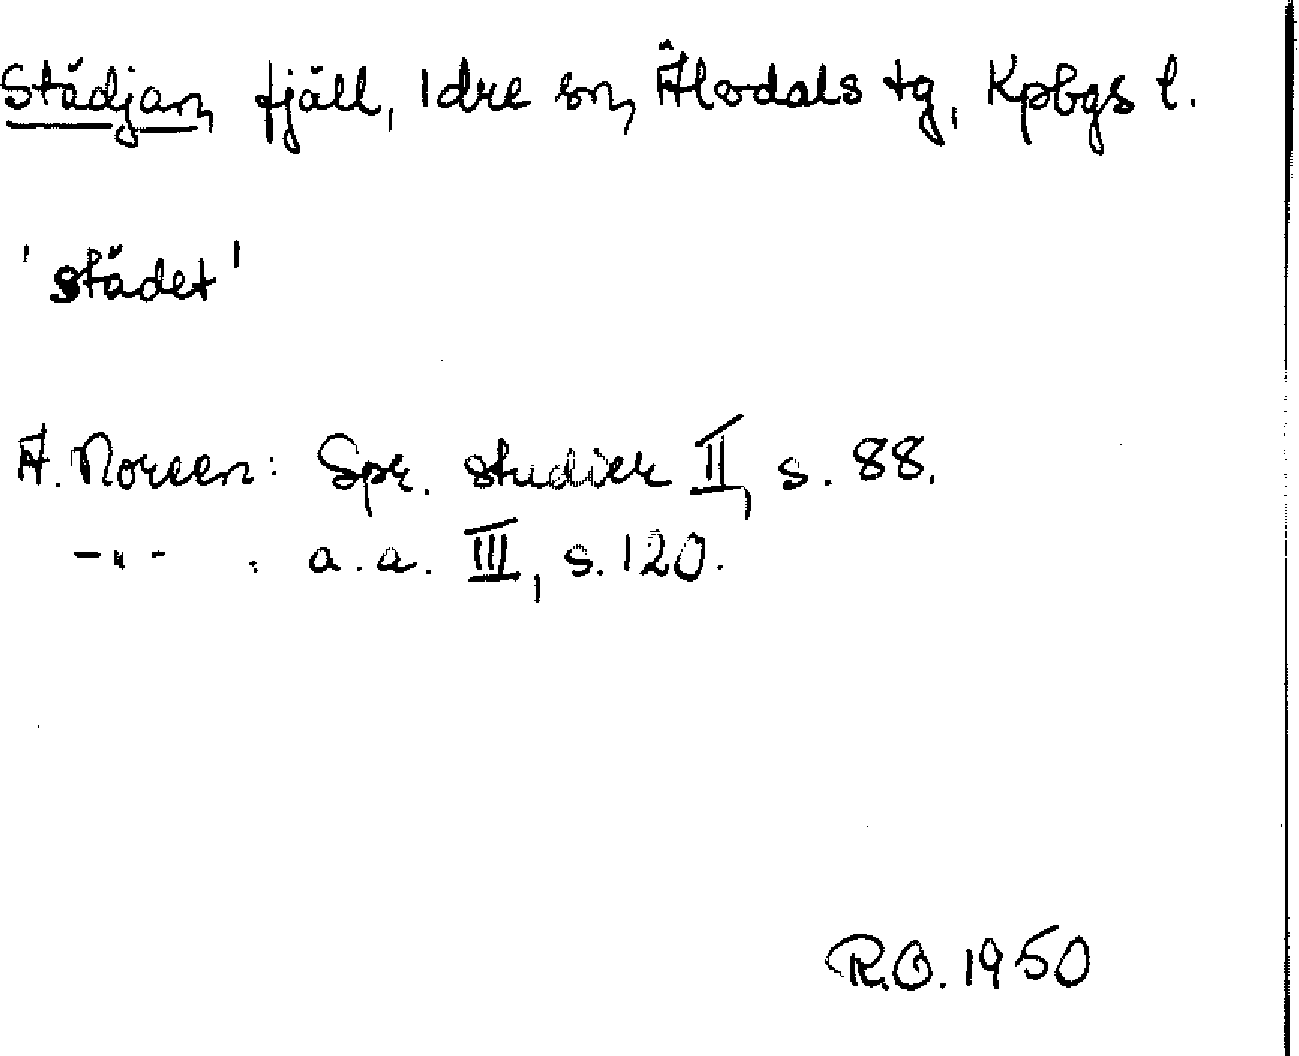 Städjan, fjäll, Idre sn, Älvdals tg, Kpbgs l.
'städet'
A. Noreen: Spr. studier II, s. 88.
-"- : a.a. III, s. 120.
R.O. 1950